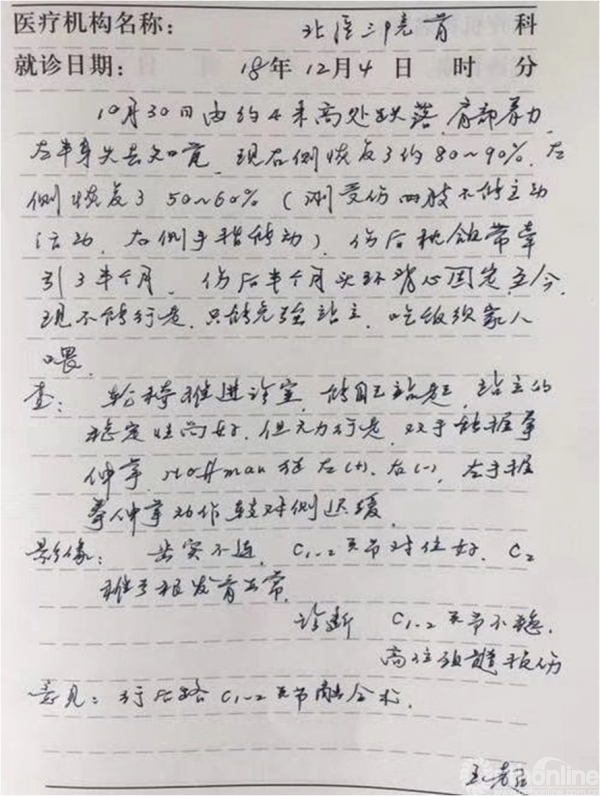 医疗机构名称： 北医三院 骨 科
就诊日期： 18 年 12 月 4 日 时 分
10月30日由约4米高处跌落，肩部暴力，
左半身失去知觉，现右侧恢复了约80~90%，左
侧恢复了50~60%（刚受伤四肢不能主动
活动，右侧手指能动）。伤后枕颌带牵
引3半个月，伤后半个月头环背心固定至今，
现不能行走，只能勉强站立，吃饭须家人
喂。
查：轮椅推进诊室，能自己站起，站立的
稳定性尚好，但无力行走，双手能握拳
伸掌，Hoffman征左(+)，右(-)，左手握
拳伸掌动作较对侧迟缓。
影像：齿突不连，C1-2关节对位好，C2
椎弓根发育正常。
诊断 C1-2关节不稳，
高位颈髓损伤
意见：行后路C1-2关节融合术。
online